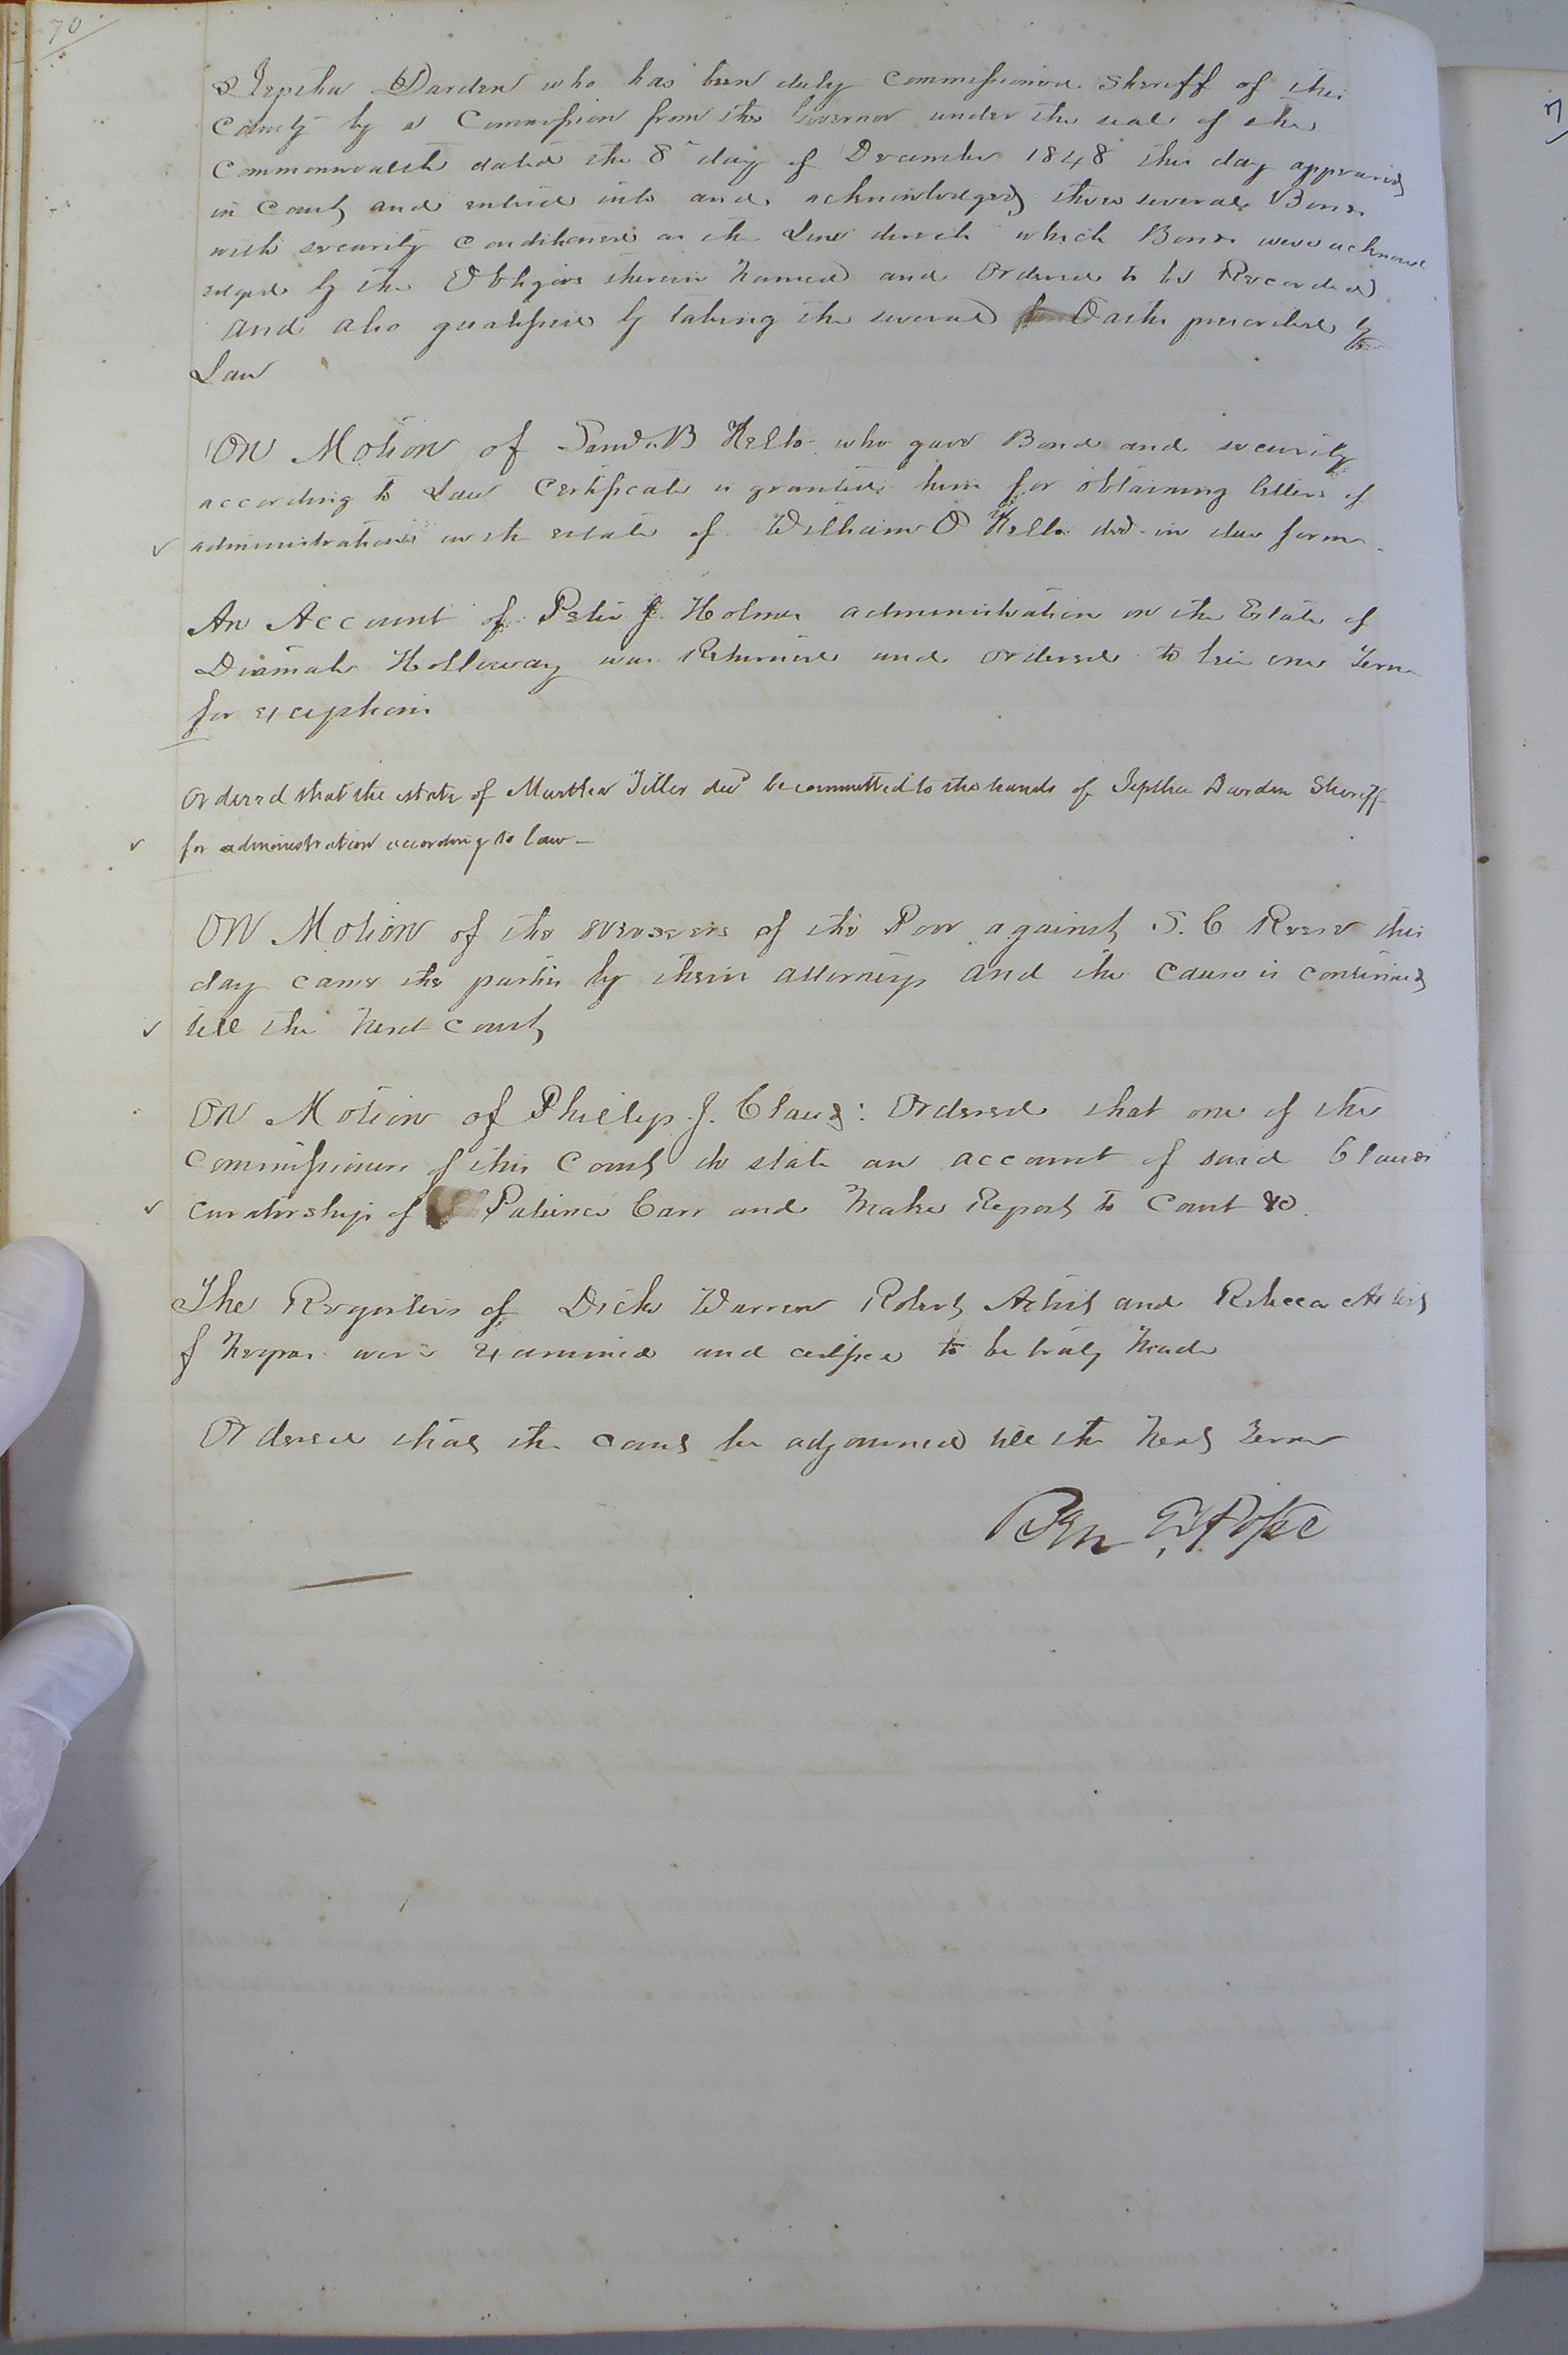 70
Jeptha Darden who has been duly Commissioned Sheriff of this
County by a Commission from the Governor under the seal of the
Commonwealth dated the 8th day of December 1848 this day appeared
in Court and entered into and acknowledged three several Bonds
with security Conditioned as the Law directs which Bonds were acknowl
edged by the Obligors therein Named and Ordered to be Recorded
and also qualified by taking the several Oaths prescribed by
Law
On Motion of Saml. B Kello who gave Bond and security
according to Law Certificate is granted him for obtaining letters of
administration on the estate of William O Kello decd. in due form.
An Account of Peter J. Holmes administration on the Estate of
Holloway was Returned and ordered to lie one Term
for exceptions
Ordered that the estate of Martha Tiller decd be committed to the hands of Jeptha Darden Sheriff
for administration according to law—
On Motion of the overseers of the Poor against S. C Reese this
day came the parties by their attorneys and the cause is continued
till the Next Court
On Motion of Phillip J. Claud: Ordered that one of the
Commissioners of this Court do state an account of said Clauds
curatorship of Patience Carr and Make Report to Court &c.
The Registers of Dick Warren Robert Artist and Rebecca Artist
f Negroes were examined and certified to be truly Made
Ordered that the Court be adjourned till the Next Term
Ben E. Pope